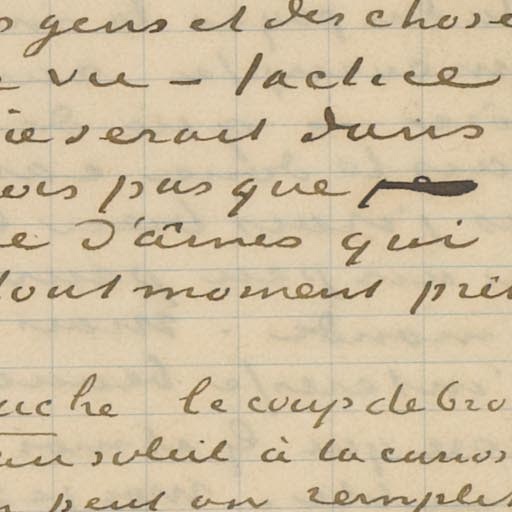 gens et des chose
vu — tactice
seront dans
pas que
d'âmes qui
tout moment prê
le coup de bro
soleil à la curios
peut on remplir